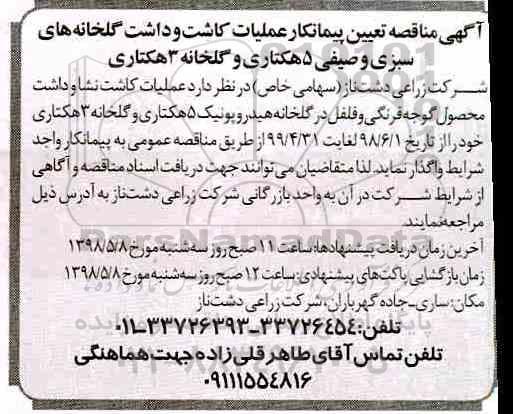 آگهی مناقصه تعیین پیمانکار عملیات کاشت و داشت گلخانه‌های
سبزی و صیفی ۵ هکتاری و گلخانه ۳ هکتاری
شرکت زراعی دشت‌ناز (سهامی خاص) در نظر دارد عملیات کاشت نشا و داشت
محصول گوجه فرنگی و فلفل در گلخانه هیدروپونیک ۵ هکتاری و گلخانه ۳ هکتاری
خود را از تاریخ ۹۸/۶/۱ لغایت ۹۹/۴/۳۱ از طریق مناقصه عمومی به پیمانکار واجد
شرایط واگذار نماید. لذا متقاضیان می‌توانند جهت دریافت اسناد مناقصه و آگاهی
از شرایط شرکت در آن به واحد بازرگانی شرکت زراعی دشت‌ناز به آدرس ذیل
مراجعه نمایند.
آخرین زمان دریافت پیشنهادها: ساعت ۱۱ صبح روز سه‌شنبه مورخ ۱۳۹۸/۵/۸
زمان بازگشایی پاکت‌های پیشنهادی: ساعت ۱۲ صبح روز سه‌شنبه مورخ ۱۳۹۸/۵/۸
مکان: ساری-جاده گهرباران، شرکت زراعی دشت‌ناز
تلفن: ۳۳۷۲۶۴۵۴-۳۳۷۲۶۳۹۳-۰۱۱
تلفن تماس آقای طاهر قلی زاده جهت هماهنگی
۰۹۱۱۱۵۵۴۸۱۶
ParsNamadData